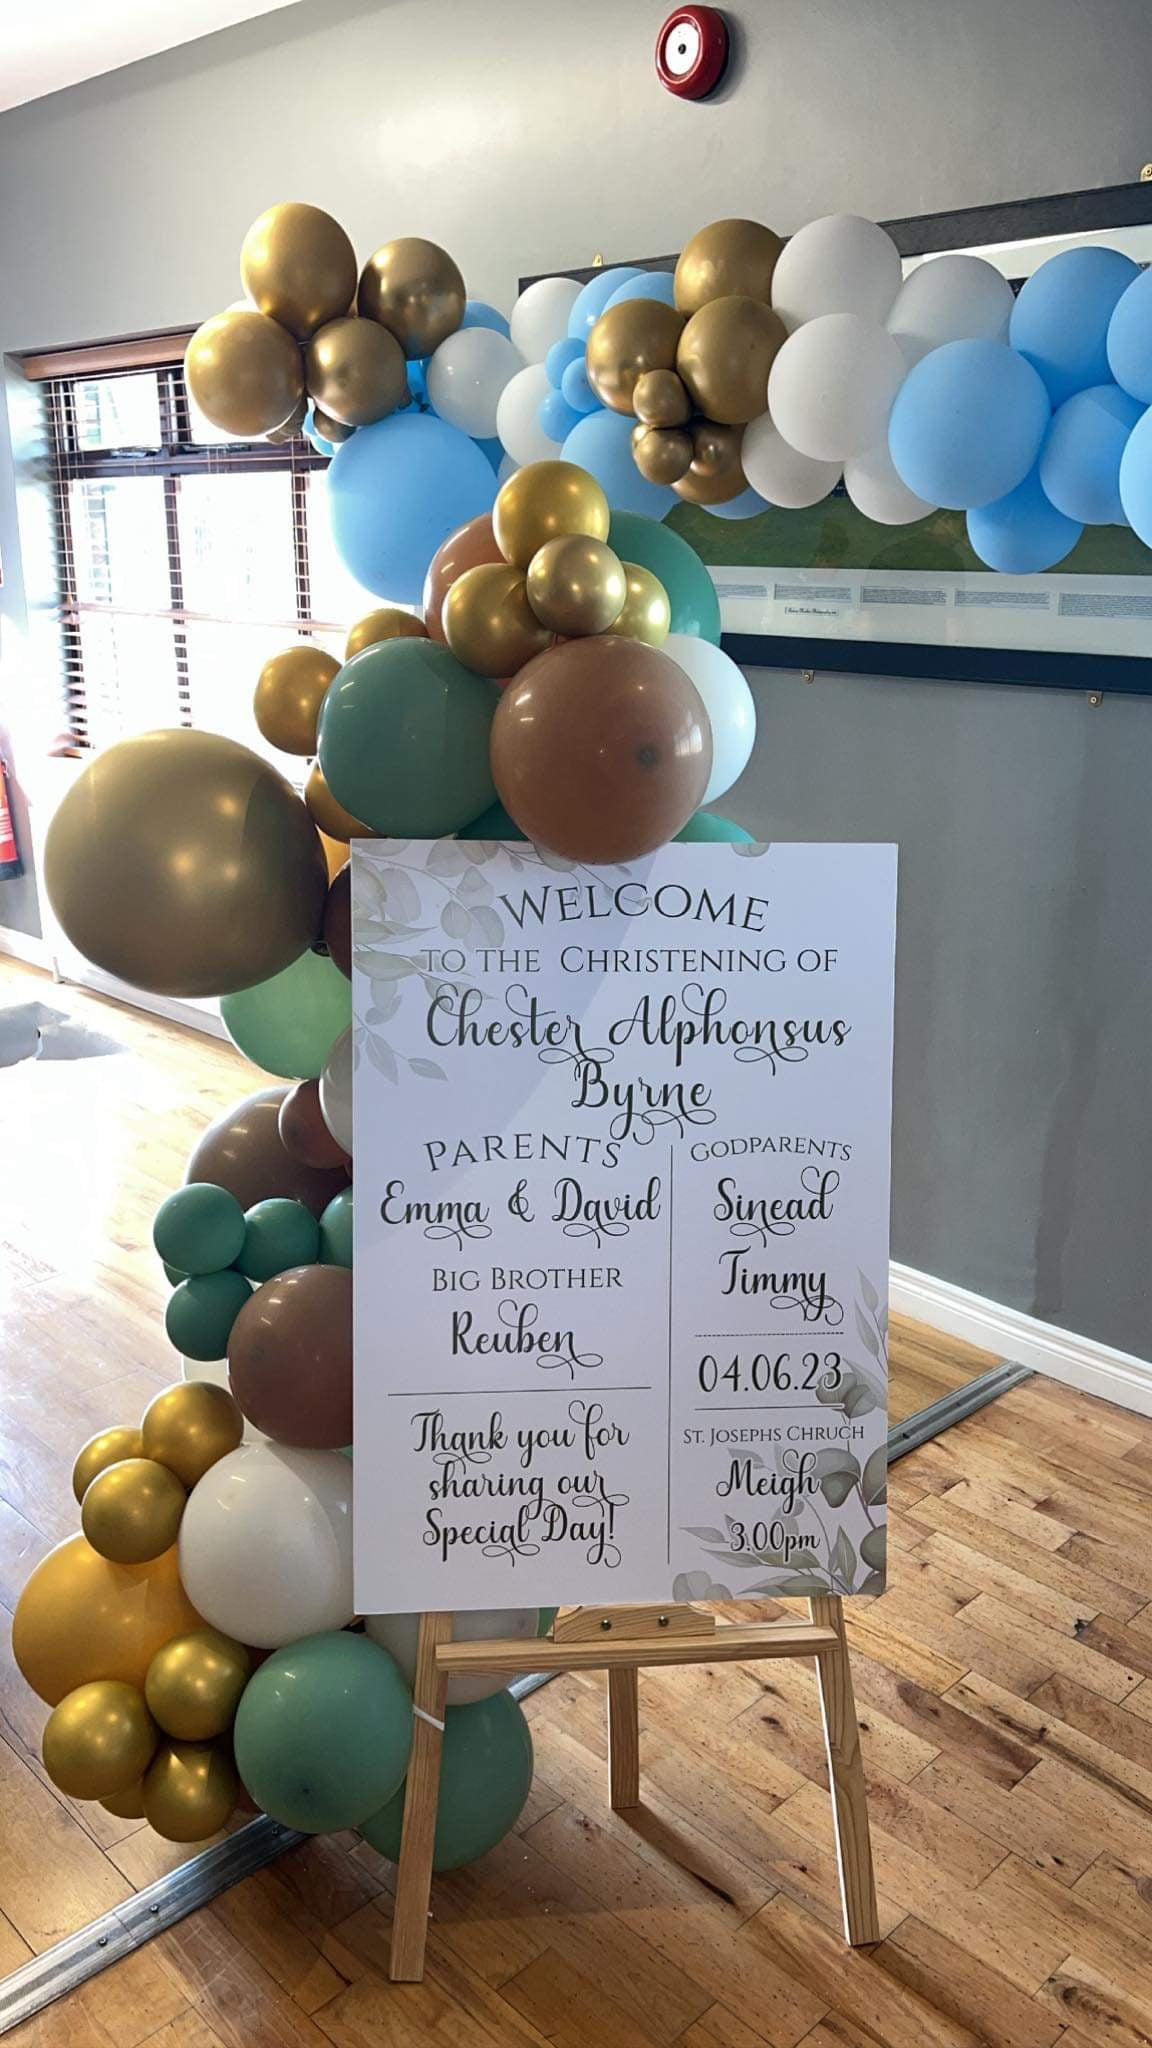 WELCOME
TO THE CHRISTENING OF
Chester Alphonsus
Byrne
PARENTS
Emma & David
BIG BROTHER
Reuben
Thank you for
sharing our
Special Day!
GODPARENTS
Sinead
Timmy
04.06.23
ST. JOSEPHS CHRUCH
Meigh
3.00pm